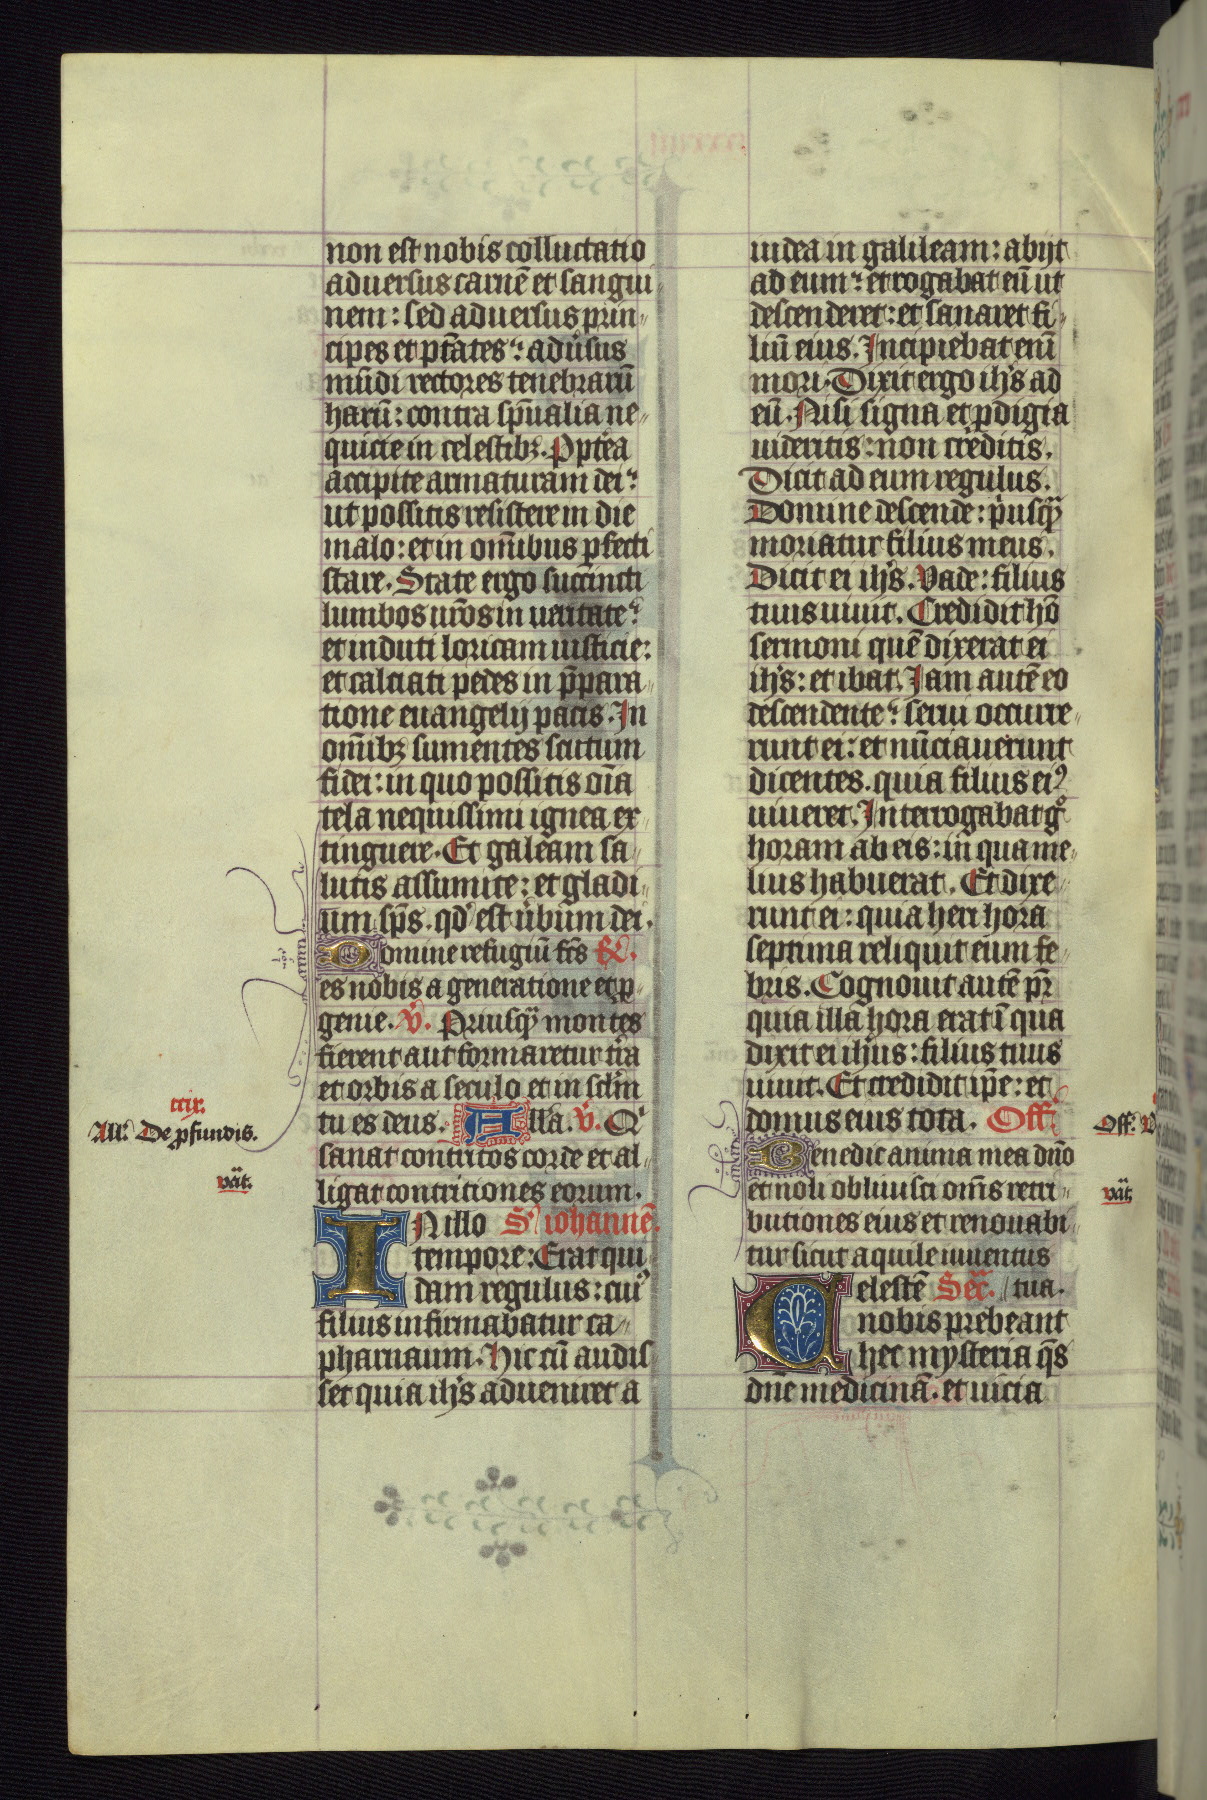 non est nobis colluctatio
aduersus carnē et sangui
nem: sed aduersus prin
cipes et ptātes: adu̾sus
mūdi rectores tenebrarū
harū: contra sp̄ualia ne
quicie in celestibꝫ. Ppt̾ea
accipite armaturam dei:
ut possitis resistere in die
malo: et in om̄ibus ꝑfecti
stare. State ergo succincti
lumbos ur̄os in ueritate:
et induti loricam iusticie:
et calciati pedes in p̄para
tione euangelij pacis. In
om̄ibꝫ sumentes scutum
fidei: in quo possitis oīa
tela nequissimi ignea ex
tinguere. Et galeam sa
lutis assumite: et gladi
um sp̄s. qd̾ est u̾bum dei.
Domine refugiū fc̄s R̄.
es nobis a generatione et ꝓ
genie. V̾. Priusqꝫ montes
fierent aut formaretur tr̄a
et orbis a seculo et in sclm̄
tu es deus. Alla. V̾. Qⁱ
sanat contritos corde et al
ligat contritiones eorum.
IN illo S. iohannē.
tempore: Erat qui
dam regulus: cuiꝰ
filius infirmabatur ca
pharnaum. Hic cū audis
set quia ih̄s adueniret a
ccix.
All. De ꝓfundis.
vāt.
iudea in galileam: abijt
ad eum: et rogabat eū ut
descenderet: et sanaret fi
liū eius. Incipiebat enī
mori. Dixit ergo ih̄s ad
eū. Nisi signa et ꝓdigia
uideritis: non creditis.
Dicit ad eum regulus.
Domine descende: pⁱusqꝫ
moriatur filius meus.
Dicit ei ih̄s. Vade: filius
tuus uiuit. Credidit hō
sermoni quē dixerat ei
ih̄s: et ibat. Iam autē eo
descendente: serui occurre
runt ei: et nūciauerunt
dicentes. quia filius eiꝰ
uiueret. Interrogabat gͦ
horam ab eis: in qua me
lius habuerat. Et dixe
runt ei: quia heri hora
septima reliquit eum fe
bris. Cognouit autē pr̄
quia illa hora erat ī qua
dixit ei ih̄us: filius tuus
uiuit. Et credidit ip̄e: et
domus eius tota. Off.
Benedic anima mea dn̄o
et noli obliuisci om̄s retri
butiones eius et renouabi
tur sicut aquile iuuentus
Celestē Sec̄. tua.
nobis prebeant
hec mysteria q̄s
dn̄e medicinā. et uicia
Off.
vāt.